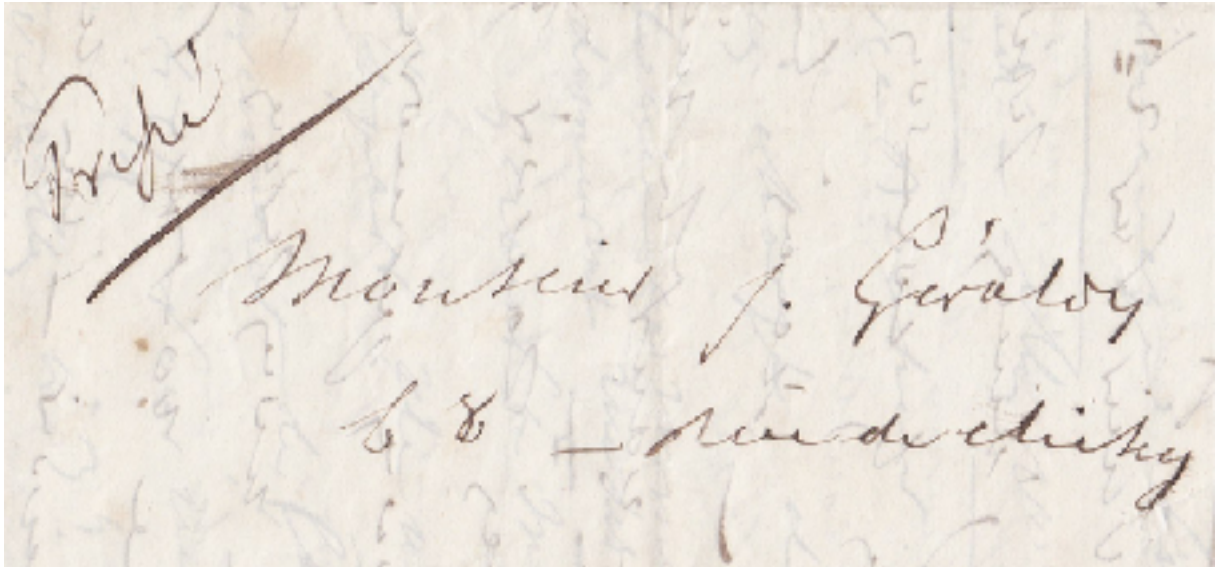 Pressé
Monsieur J. Géraldy
68 - rue de Clichy